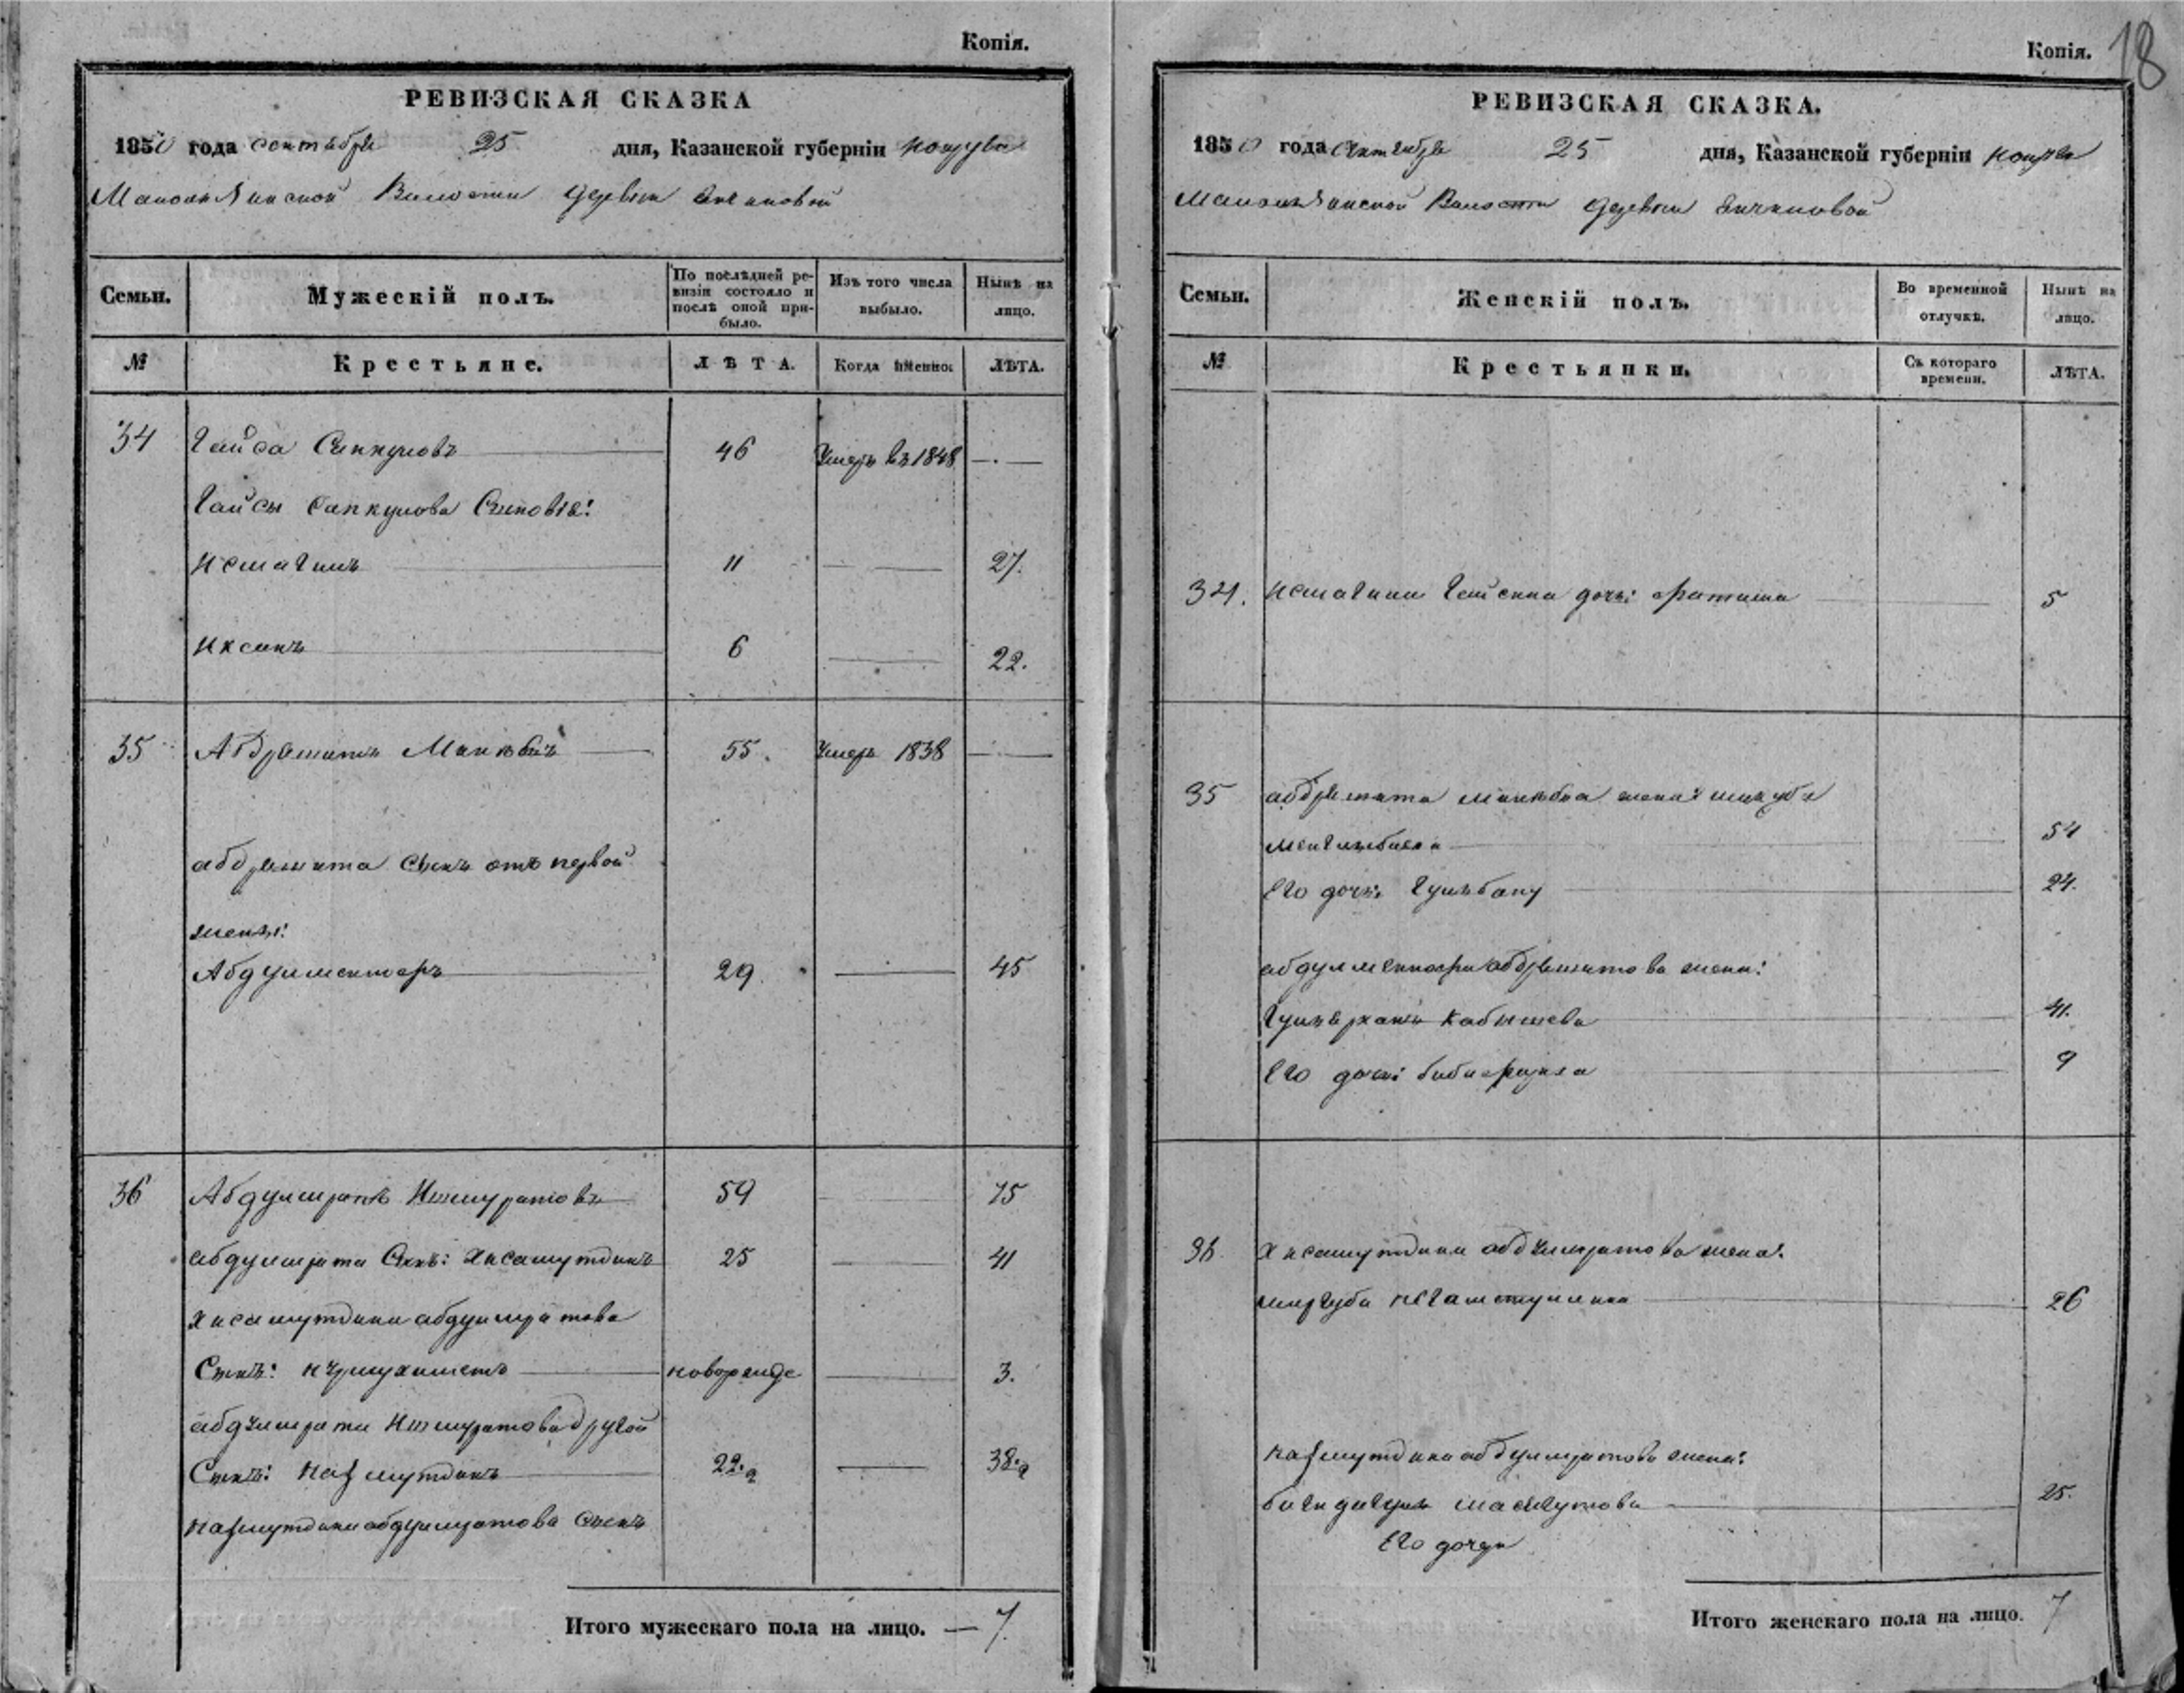 Копія.
РЕВИЗСКАЯ СКАЗКА
1850 года сентября 25 дня, Казанской губерніи
Волости деревни
Семьи. Мужескій полъ. По послѣдней ревизіи состояло и послѣ оной прибыло. Изъ того числа выбыло. Нынѣ на лицо.
№ Крестьяне. ЛѢТА. Когда именно. ЛѢТА.
34 Гайса Сапкуловъ 46 Умеръ въ 1848
Гайсы Сапкулова Сыновья:
Исмагилъ 11 27.
Иксанъ 6 22.
35 Абдрешитъ 55. Умеръ 1838
абдрешита Сынъ отъ первой
жены:
Абдулменафъ 29. 45
36 Абдулмратъ Итмуратовъ 59 75
абдулмрата Сынъ: Хисамутдинъ 25 41
Хисамутдина абдулмратова
Сынъ: нурмухаметъ новорожде 3.
абдулмрата Итмуратова другой
Сынъ: назмутдинъ 22. 38.
назмутдина абдулмратова Сынъ
Итого мужескаго пола на лицо. — 7.
18
Копія.
РЕВИЗСКАЯ СКАЗКА.
1850 года сентября 25 дня, Казанской губерніи
Волости деревни
Семьи. Женскій полъ. Во временной отлучкѣ. Нынѣ на лицо.
№ Крестьянки. Съ котораго времени. ЛѢТА.
34. Исмагила Гайсина дочь: Фатима 5
35 абдрешита жена:
54
Его дочь Гульбану 24.
абдулменафа абдрешитова жена:
Кабышева 41.
Его дочь: 9
36. Хисамутдина абдулмратова жена:
26
назмутдина абдулмратова жена:
25.
Его дочери
Итого женскаго пола на лицо. 7